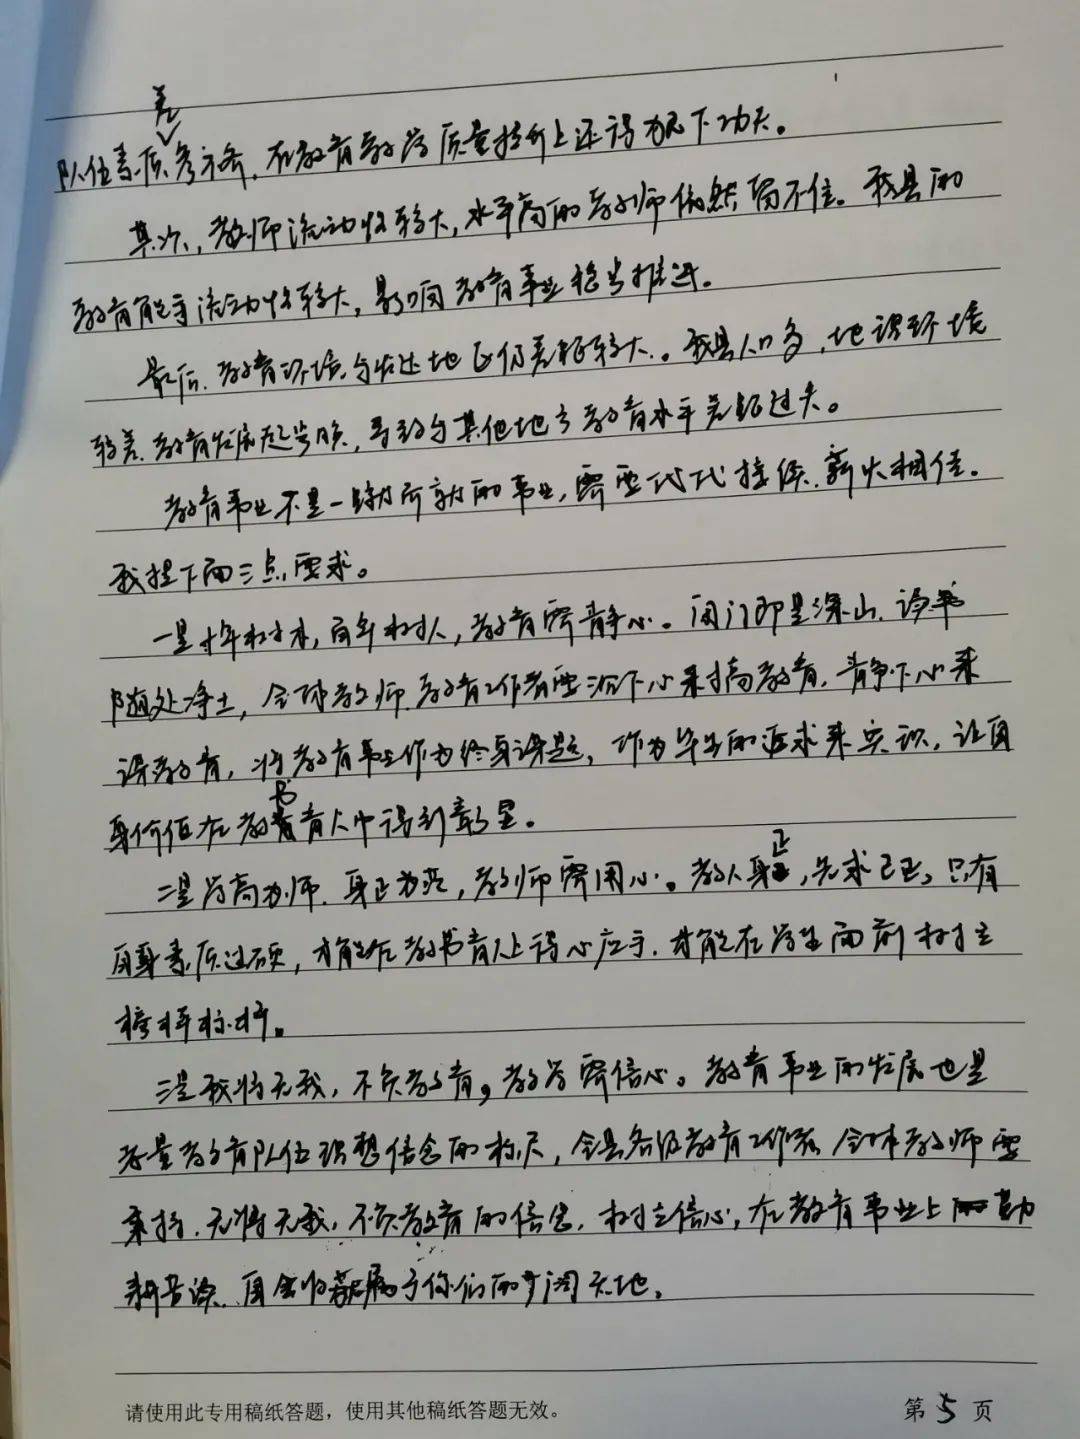 队伍素质差参不齐，在教育教学质量提升上还得狠下功夫。
其次，教师流动性较大，水平高的教师依然留不住。我县的
教育能手流动性较大，影响教育事业稳步推进。
最后，教育环境与发达地区仍差距较大。我县人口多，地理环境
较差，教育发展起步晚，导致与其他地方教育水平差距过大。
教育事业不是一蹴而就的事业，需要代代接续、薪火相传。
我提下面三点要求。
一是十年树木，百年树人，教育需静心。闭门即是深山，读书
随处净土，全体教师、教育工作者要沉下心来搞教育，静下心来
谋教育，将教育事业作为终身课题，作为毕生的追求来实识，让自
身价值在教书育人中得到彰显。
二是学高为师，身正为范，教师需用心。教人身正，先求己正，只有
自身素质过硬，才能在教书育人上得心应手，才能在学生面前树立
榜样标杆。
三是我将无我，不负教育，教学需信心。教育事业的发展也是
考量教育队伍理想信念的标尺，全县各级教育工作者、全体教师要
秉持，无将无我，不负教育的信念，树立信心，在教育事业上勤
耕苦读，自会收获属于你们的广阔天地。
请使用此专用稿纸答题，使用其他稿纸答题无效。
第5页